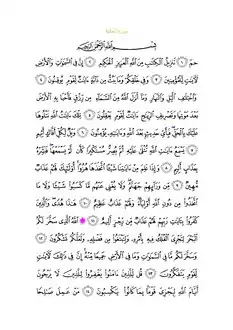 سُورَةُ الجَاثِيَةِ
بِسْمِ ٱللَّهِ ٱلرَّحْمَٰنِ ٱلرَّحِيمِ
حمٓ ﴿١﴾ تَنزِيلُ ٱلْكِتَٰبِ مِنَ ٱللَّهِ ٱلْعَزِيزِ ٱلْحَكِيمِ ﴿٢﴾ إِنَّ فِى ٱلسَّمَٰوَٰتِ وَٱلْأَرْضِ
لَءَايَٰتٍ لِّلْمُؤْمِنِينَ ﴿٣﴾ وَفِى خَلْقِكُمْ وَمَا يَبُثُّ مِن دَآبَّةٍ ءَايَٰتٌ لِّقَوْمٍ يُوقِنُونَ ﴿٤﴾
وَٱخْتِلَٰفِ ٱلَّيْلِ وَٱلنَّهَارِ وَمَآ أَنزَلَ ٱللَّهُ مِنَ ٱلسَّمَآءِ مِن رِّزْقٍ فَأَحْيَا بِهِ ٱلْأَرْضَ
بَعْدَ مَوْتِهَا وَتَصْرِيفِ ٱلرِّيَٰحِ ءَايَٰتٌ لِّقَوْمٍ يَعْقِلُونَ ﴿٥﴾ تِلْكَ ءَايَٰتُ ٱللَّهِ نَتْلُوهَا
عَلَيْكَ بِٱلْحَقِّ فَبِأَىِّ حَدِيثٍۭ بَعْدَ ٱللَّهِ وَءَايَٰتِهِۦ يُؤْمِنُونَ ﴿٦﴾ وَيْلٌ لِّكُلِّ أَفَّاكٍ أَثِيمٍ ﴿٧﴾
يَسْمَعُ ءَايَٰتِ ٱللَّهِ تُتْلَىٰ عَلَيْهِ ثُمَّ يُصِرُّ مُسْتَكْبِرًا كَأَن لَّمْ يَسْمَعْهَا فَبَشِّرْهُ
بِعَذَابٍ أَلِيمٍ ﴿٨﴾ وَإِذَا عَلِمَ مِنْ ءَايَٰتِنَا شَيْـًٔا ٱتَّخَذَهَا هُزُوًا أُو۟لَٰٓئِكَ لَهُمْ عَذَابٌ
مُّهِينٌ ﴿٩﴾ مِّن وَرَآئِهِمْ جَهَنَّمُ وَلَا يُغْنِى عَنْهُم مَّا كَسَبُوا۟ شَيْـًٔا وَلَا مَا
ٱتَّخَذُوا۟ مِن دُونِ ٱللَّهِ أَوْلِيَآءَ وَلَهُمْ عَذَابٌ عَظِيمٌ ﴿١٠﴾ هَٰذَا هُدًى وَٱلَّذِينَ
كَفَرُوا۟ بِـَٔايَٰتِ رَبِّهِمْ لَهُمْ عَذَابٌ مِّن رِّجْزٍ أَلِيمٌ ﴿١١﴾ ٱللَّهُ ٱلَّذِى سَخَّرَ لَكُمُ
ٱلْبَحْرَ لِتَجْرِىَ ٱلْفُلْكُ فِيهِ بِأَمْرِهِۦ وَلِتَبْتَغُوا۟ مِن فَضْلِهِۦ وَلَعَلَّكُمْ تَشْكُرُونَ ﴿١٢﴾
وَسَخَّرَ لَكُم مَّا فِى ٱلسَّمَٰوَٰتِ وَمَا فِى ٱلْأَرْضِ جَمِيعًا مِّنْهُ إِنَّ فِى ذَٰلِكَ لَءَايَٰتٍ
لِّقَوْمٍ يَتَفَكَّرُونَ ﴿١٣﴾ قُل لِّلَّذِينَ ءَامَنُوا۟ يَغْفِرُوا۟ لِلَّذِينَ لَا يَرْجُونَ
أَيَّامَ ٱللَّهِ لِيَجْزِىَ قَوْمًۢا بِمَا كَانُوا۟ يَكْسِبُونَ ﴿١٤﴾ مَنْ عَمِلَ صَٰلِحًا